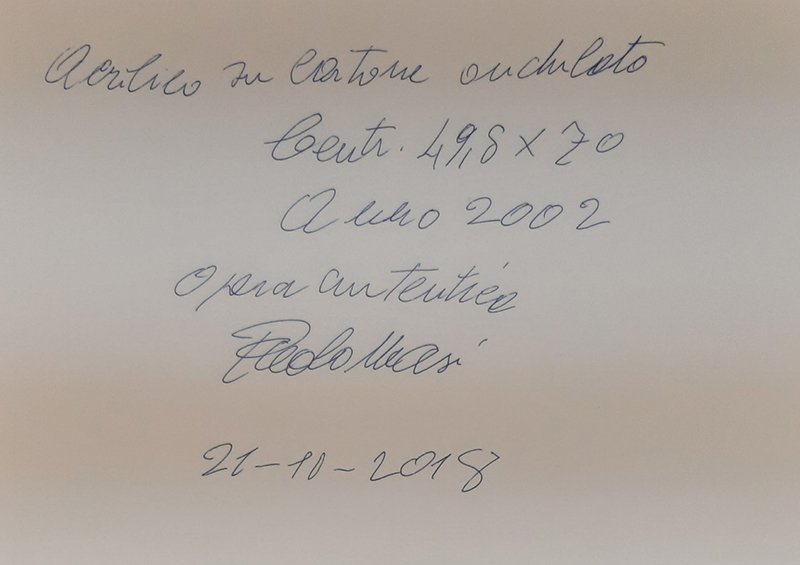 Acrilico su Cartone ondulato
Centr. 49,8 x 70
Anno 2002
Opera autentica
Paolo Masi
21-10-2018